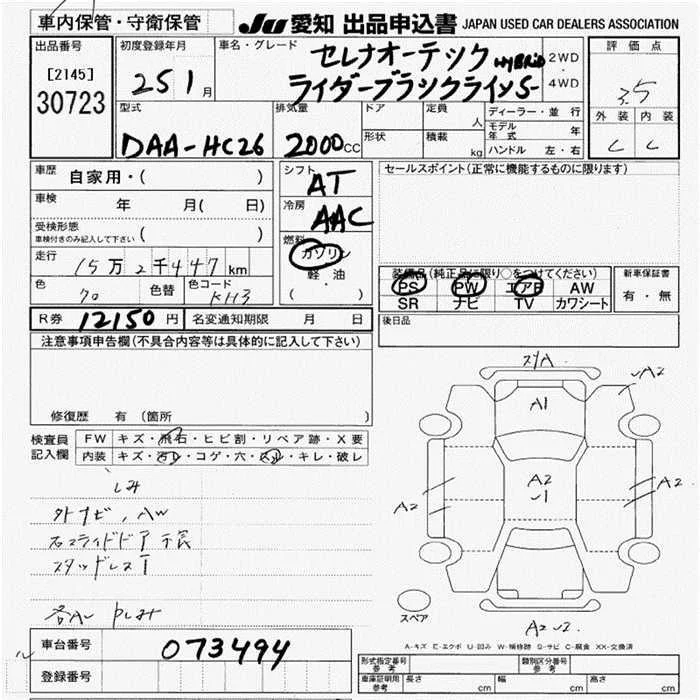 車内保管・守衛保管
JU 愛知 出品申込書 JAPAN USED CAR DEALERS ASSOCIATION
出品番号
[2145]
30723
初度登録年月
25 1 月
車名・グレード
セレナオーテック HYBRID
ライダーブラックラインS-
2WD
4WD
評価点
3.5
外装 内装
C C
型式
DAA-HC26
排気量
2000 CC
ドア
形状
定員
人
積載
kg
ディーラー・並行
モデル年式 年
ハンドル 左・右
車歴 自家用・( )
車検 年 月( 日)
受検形態
車検付きのみ記入して下さい ( )
走行 15万2千447 km
色 70 色替 色コード KH3
シフト
AT
冷房
AAC
燃料
ガソリン
軽・油
( )
セールスポイント(正常に機能するものに限ります)
装備品(純正品に限り○をつけてください)
PS PW エアB AW
SR ナビ TV カワシート
新車保証書
有・無
後日品
R券 12150 円 名変通知期限 月 日
注意事項申告欄(不具合内容等は具体的に記入して下さい)
修復歴 有(箇所 )
検査員記入欄
FW キズ・飛石・ヒビ割・リペア跡・X要
内装 キズ・汚レ・コゲ・穴・スレ・キレ・破レ
しみ
外ナビ、AW
スタッドレスT
車台番号 073494
登録番号
A1
A2
A2
U1
A2
A2
スペア
A-キズ E-エクボ U-凹み W-補修跡 S-サビ C-腐食 XX-交換済
形式指定番号 参考
類別区分番号 参考
車庫証明用 参考 長さ cm 幅 cm 高さ cm